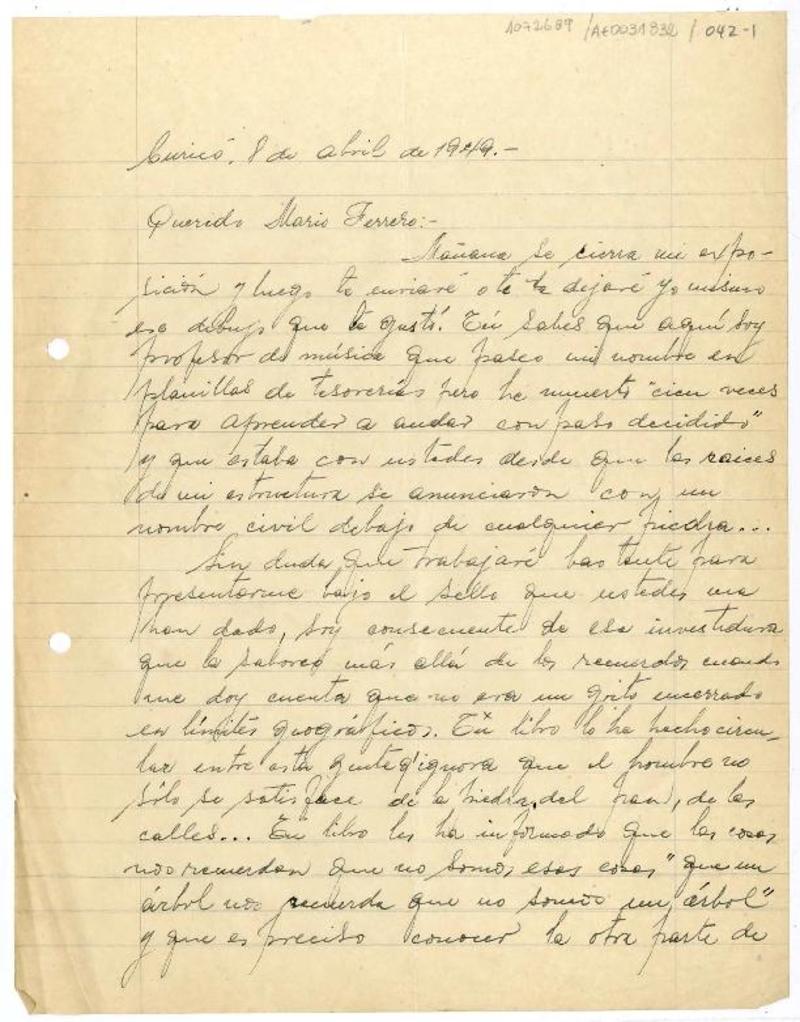 1072689 /AE0031832 / 042-1
Curicó, 8 de abril de 1949.-
Querido Mario Ferrero:-
Mañana se cierra mi expo-
sición y luego te enviaré o te la dejaré yo mismo
ese dibujo que te gustó. Tú sabes que aquí soy
profesor de música que paseo mi nombre en
planillas de tesorerías pero he muerto "cien veces
para aprender a andar con paso decidido"
y que estaba con ustedes desde que las raices
de mi estructura se anunciaron con un
nombre civil debajo de cualquier piedra...
Sin duda que trabajaré bastante para
presentarme bajo el sello que ustedes me
han dado, soy consecuente de esa investidura
que la saboreo más allá de los recuerdos cuando
me doy cuenta que no era un grito encerrado
en límites geográficos. Tu libro lo he hecho circu-
lar entre esta gente q' ignora que el hombre no
sólo se satisface de la piedra, del pan, de las
calles... Tu libro les ha informado que las cosas
nos recuerdan que no somos esas cosas "que un
árbol nos recuerda que no somos un árbol"
y que es preciso conocer la otra parte de